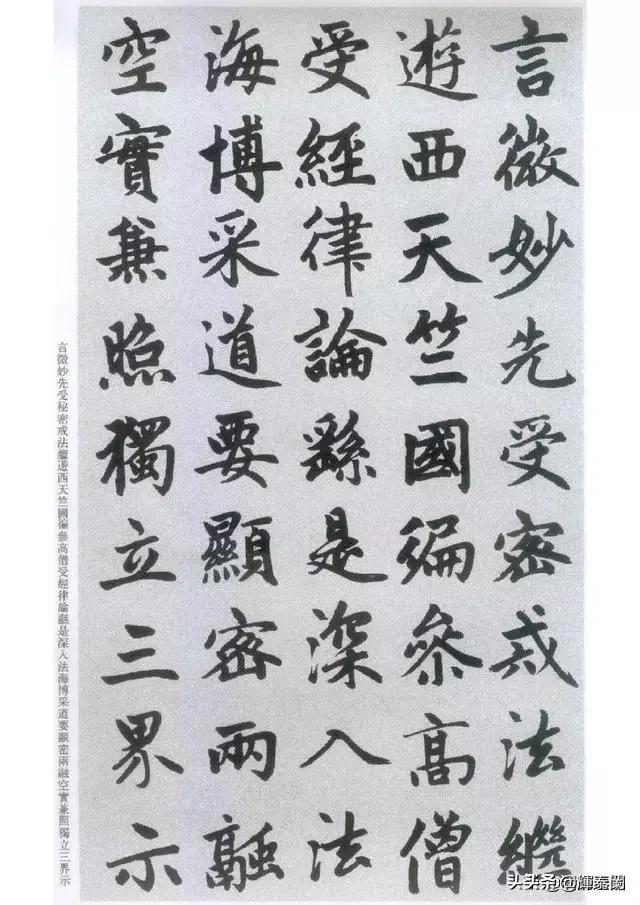 言微妙先受密戒法繼
遊西天竺國徧參高僧
受經律論繇是深入法
海博采道要顯密兩融
空實兼照獨立三界示
言微妙先受秘密戒法繼遊西天竺國徧參高僧受經律論繇是深入法海博采道要顯密兩融空實兼照獨立三界示
头条@輝泰閣